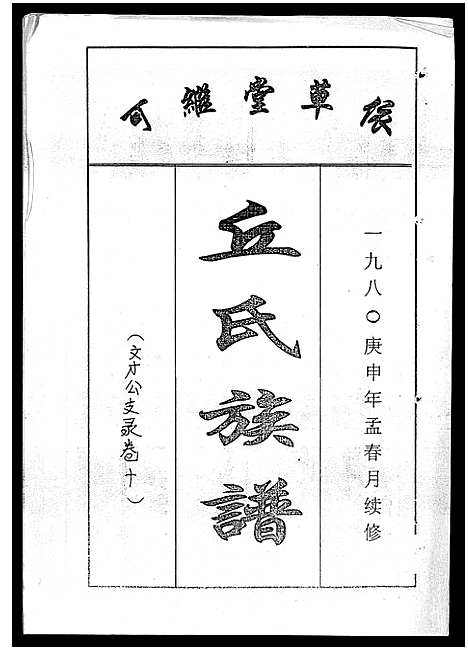 草堂維
一九八〇庚申年孟春月续修
丘氏族譜
(文才公支录卷十)